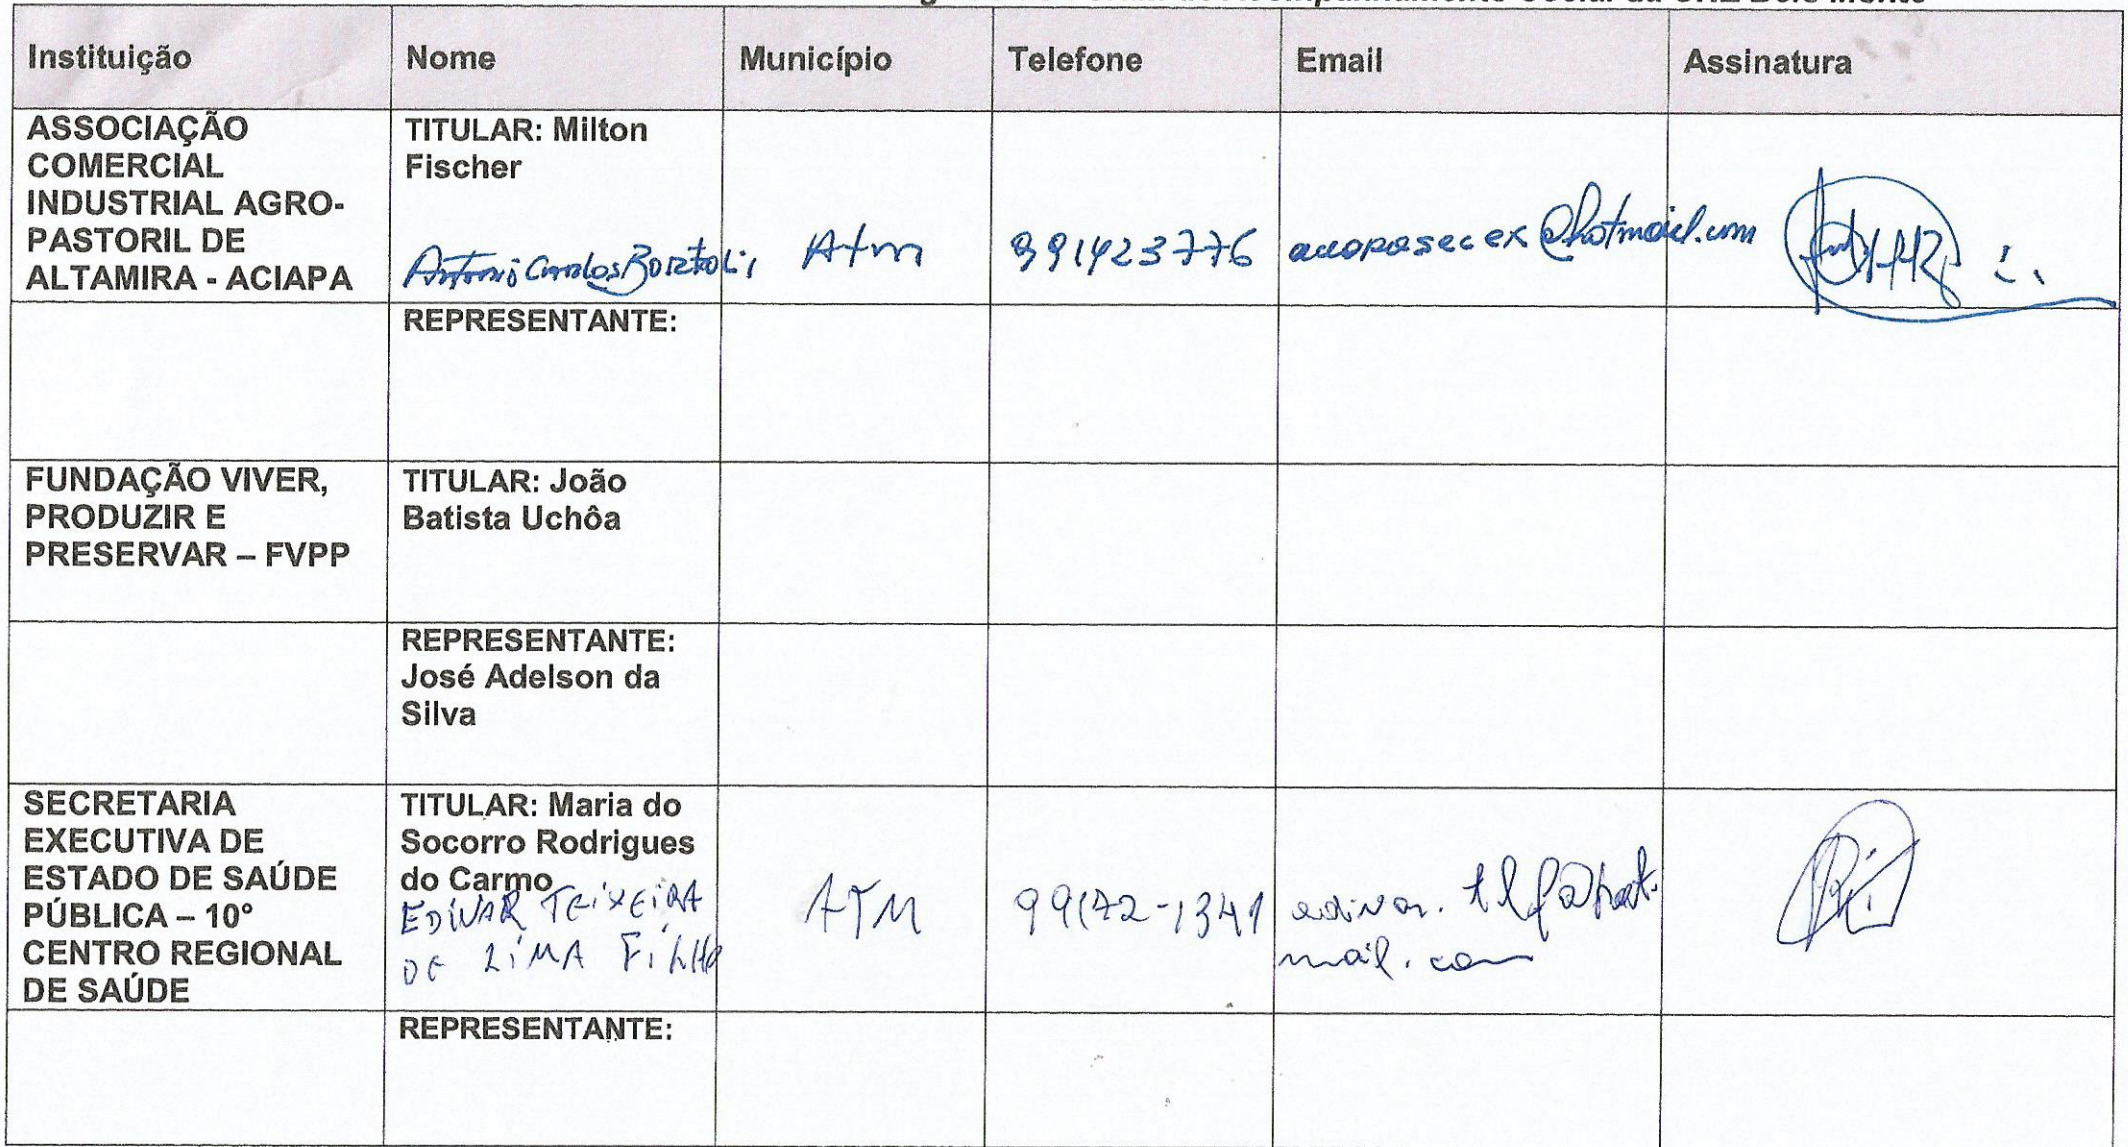 Acompanhamento Social da UHE Belo Monte
Instituição Nome Município Telefone Email Assinatura
ASSOCIAÇÃO
COMERCIAL
INDUSTRIAL AGRO-
PASTORIL DE
ALTAMIRA - ACIAPA
TITULAR: Milton
Fischer
Antonio Carlos Bortoli
Atm
991423776
@hotmail.com
REPRESENTANTE:
FUNDAÇÃO VIVER,
PRODUZIR E
PRESERVAR – FVPP
TITULAR: João
Batista Uchôa
REPRESENTANTE:
José Adelson da
Silva
SECRETARIA
EXECUTIVA DE
ESTADO DE SAÚDE
PÚBLICA – 10°
CENTRO REGIONAL
DE SAÚDE
TITULAR: Maria do
Socorro Rodrigues
do Carmo
EDIVAR TEIXEIRA
DE LIMA FILHO
ATM
99172-1341
edivar.tlf@hot-
mail.com
REPRESENTANTE: